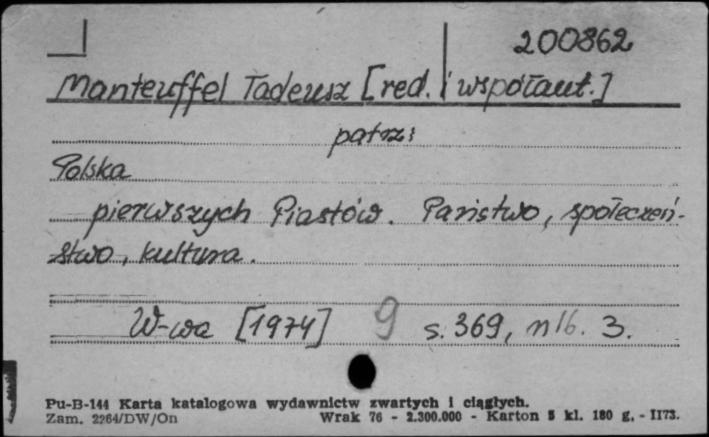 200862
Manteuffel Tadeusz [red. i współaut.]
patrz:
Polska
pierwszych Piastów. Państwo, społeczeń-
stwo, kultura.
W-wa [1974] 9 s. 369, nlb. 3.
Pu-B-144 Karta katalogowa wydawnictw zwartych i ciągłych.
Zam. 2264/DW/On Wrak 76 - 2.300.000 - Karton 5 kl. 180 g. - II73.